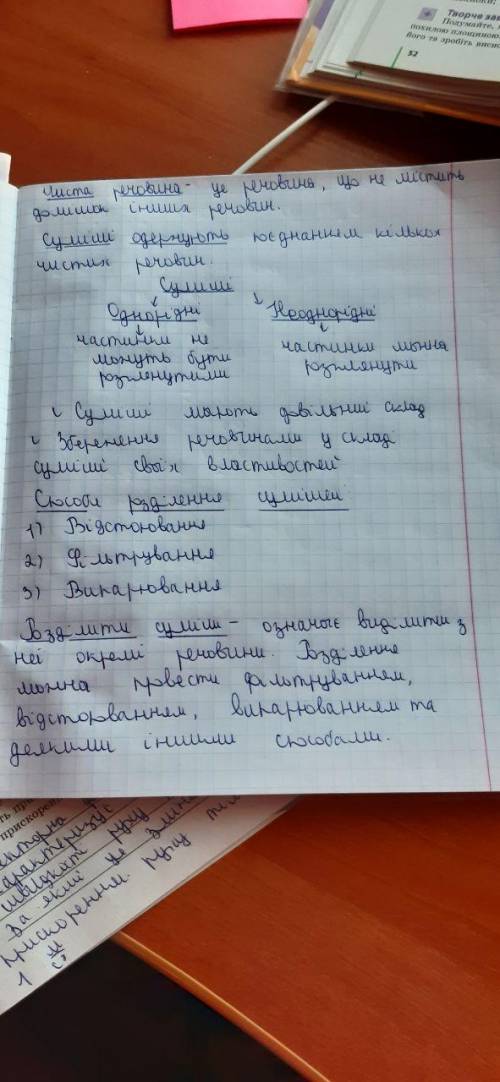 Творче зав
Подумайте,
похилою площиною
його та зробіть висн
52
Чиста речовина - це речовина, що не містить
домішок інших речовин.
Суміші одержують поєднанням кількох
чистих речовин.
Суміші
Однорідні Неоднорідні
частинки не
можуть бути
розглянутими
частинки можна
розглянути
Суміші мають довільний склад
Збереження речовинами у складі
суміші своїх властивостей
Способи розділення сумішей
1) Відстоювання
2) Фільтрування
3) Випарювання
Розділити суміш - означає виділити з
неї окремі речовини. Розділення
можна провести фільтруванням,
відстоюванням, випарюванням та
деякими іншими способами.
прискорен
характеризує
швидкість руху
за який це зміна
прискоренням руху тіла